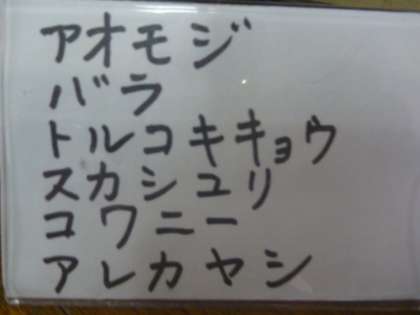 アオモジ
バラ
トルコキキョウ
スカシユリ
コワニー
アレカヤシ